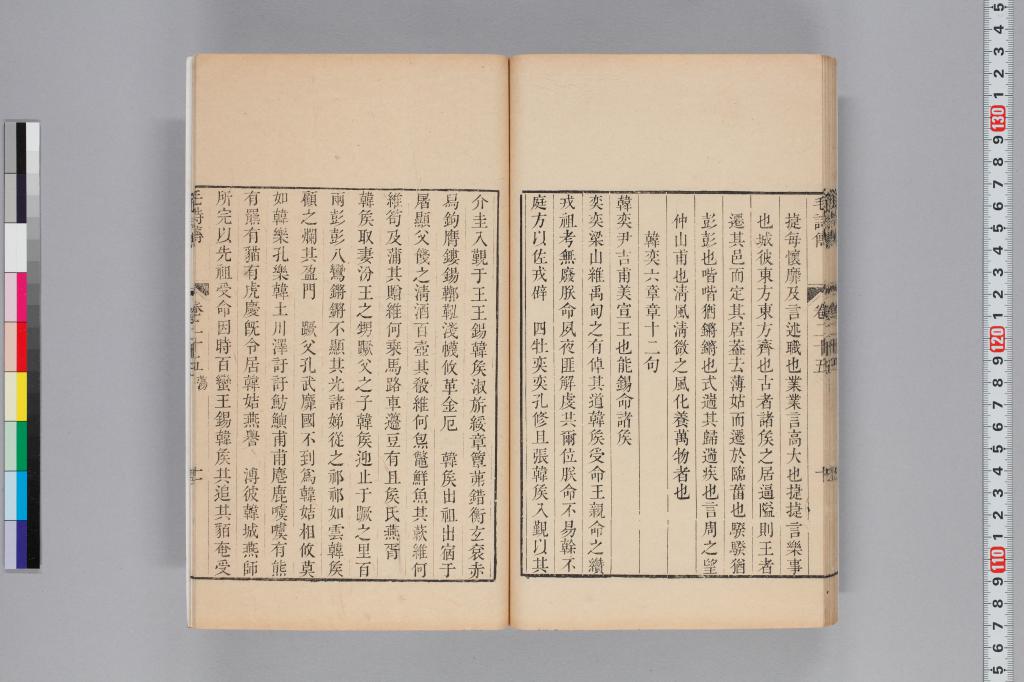 捷每懷靡及言述職也業業言高大也捷捷言樂事
也城彼東方東方齊也古者諸矦之居逼隘則王者
遷其邑而定其居葢去薄姑而遷於臨菑也騤騤猶
彭彭也喈喈猶鏘鏘也式遄其歸遄疾也言周之望
仲山甫也淸風淸微之風化養萬物者也
韓奕六章章十二句
韓奕尹吉甫美宣王也能錫命諸矦
奕奕梁山維禹甸之有倬其道韓矦受命王親命之纘
戎祖考無廢朕命夙夜匪解虔共爾位朕命不易榦不
庭方以佐戎辟　四牡奕奕孔修且張韓矦入覲以其
介圭入覲于王王錫韓矦淑旂綏章簟茀錯衡玄袞赤
舄鉤膺鏤錫鞹鞃淺幭攸革金厄　韓矦出祖出宿于
屠顯父餞之淸酒百壺其殽維何炰鼈鮮魚其蔌維何
維筍及蒲其贈維何乘馬路車籩豆有且矦氏燕胥
韓矦取妻汾王之甥蹶父之子韓矦迎止于蹶之里百
兩彭彭八鸞鏘鏘不顯其光諸娣從之祁祁如雲韓矦
顧之爛其盈門　蹶父孔武靡國不到爲韓姞相攸莫
如韓樂孔樂韓土川澤訏訏魴鱮甫甫麀鹿噳噳有熊
有羆有貓有虎慶旣令居韓姞燕譽　溥彼韓城燕師
所完以先祖受命因時百蠻王錫韓矦其追其貊奄受